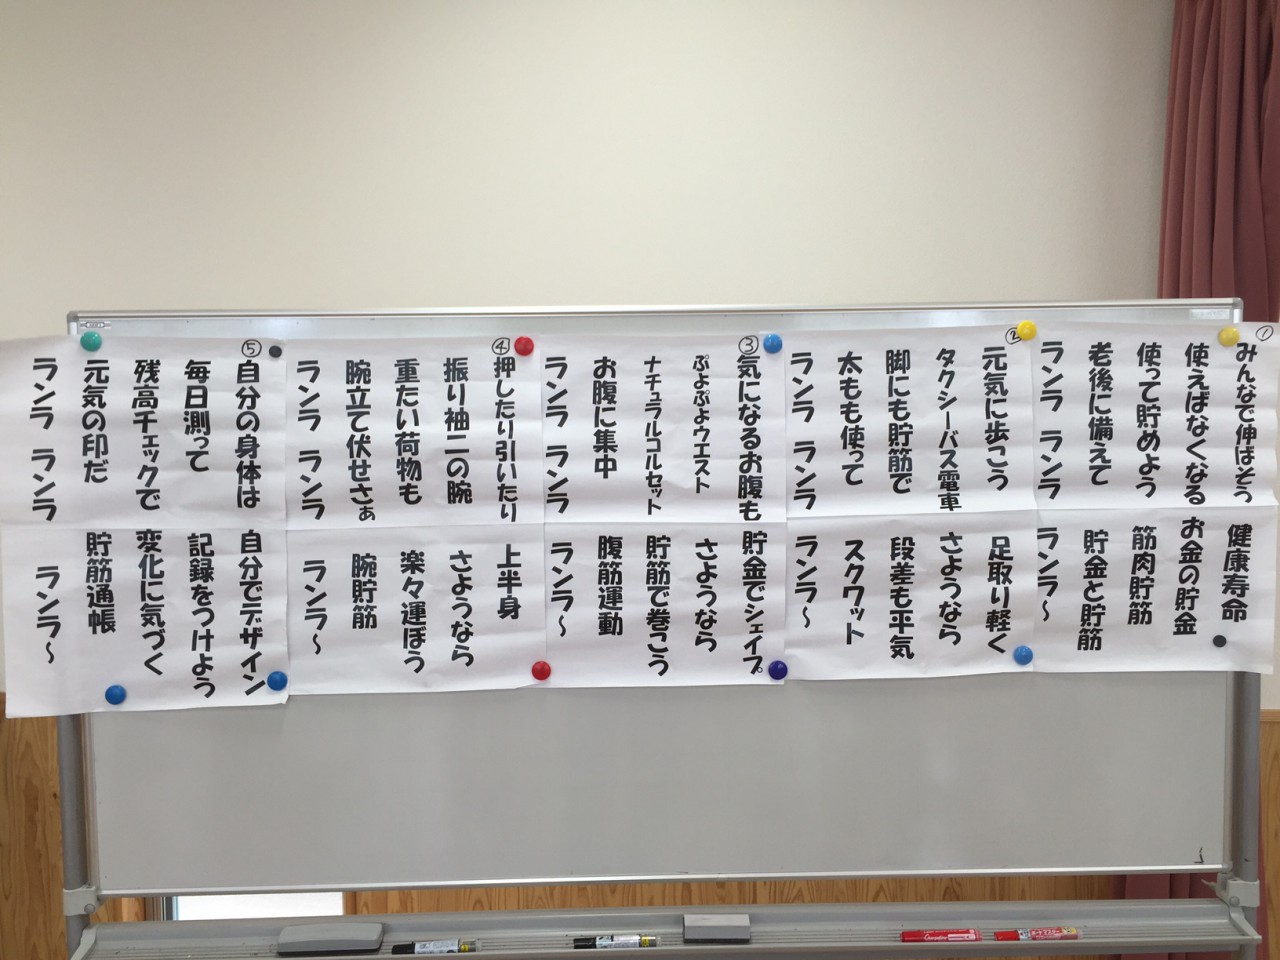 ①
みんなで伸ばそう 健康寿命
使えばなくなる お金の貯金
使って貯めよう 筋肉貯筋
老後に備えて 貯金と貯筋
ランラ ランラ ランラ～
②
元気に歩こう 足取り軽く
タクシーバス電車 さようなら
脚にも貯筋で 段差も平気
太もも使って スクワット
ランラ ランラ ランラ～
③
気になるお腹も 貯金でシェイプ
ぷよぷよウエスト さようなら
ナチュラルコルセット 貯筋で巻こう
お腹に集中 腹筋運動
ランラ ランラ ランラ～
④
押したり引いたり 上半身
振り袖二の腕 さようなら
重たい荷物も 楽々運ぼう
腕立て伏せさぁ 腕貯筋
ランラ ランラ ランラ～
⑤
自分の身体は 自分でデザイン
毎日測って 記録をつけよう
残高チェックで 変化に気づく
元気の印だ 貯筋通帳
ランラ ランラ ランラ～